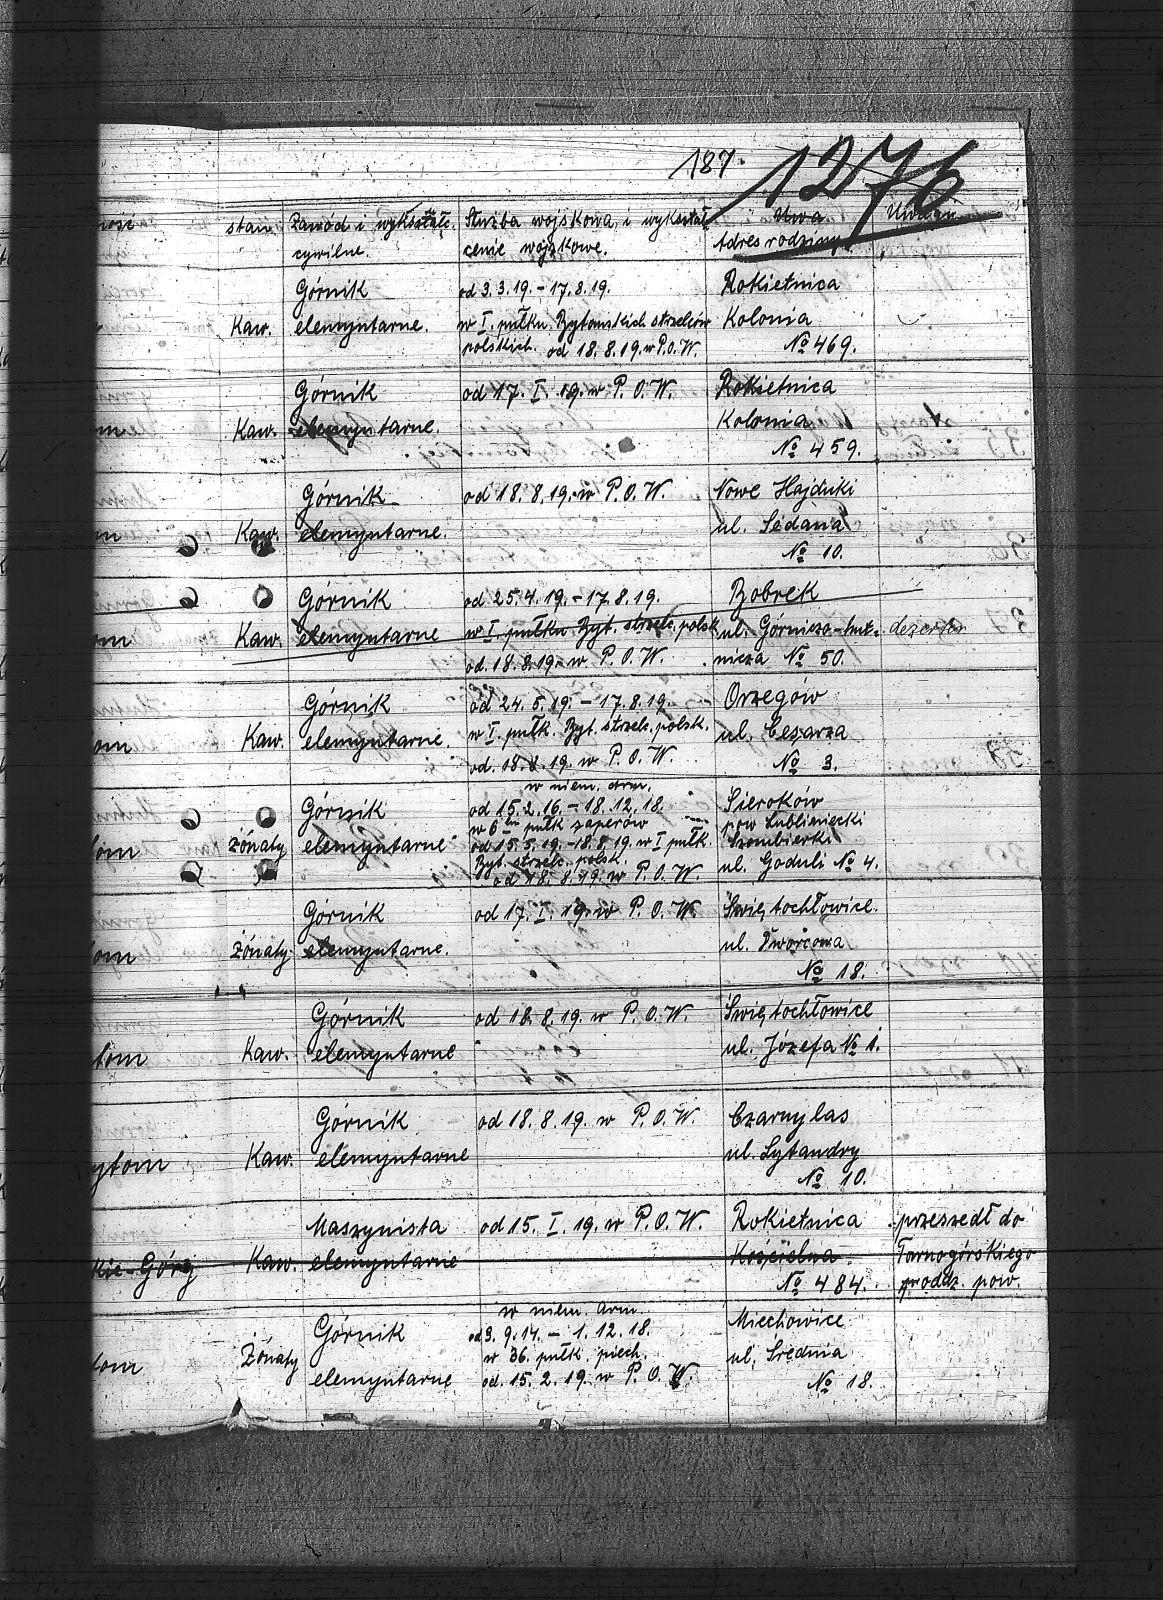 187. 1276
stan Zawód i wykształc. Służba wojskowa i wykształ Uwa Uwagi
cywilne. cenie wojskowe. Adres rodziny
Górnik od 3.3.19. - 17.8.19. Rokietnica
Kaw. elemyntarne. w I. pułku Bytomskich strzelców Kolonia
polskich. od 18.8.19. w P.O.W. No 469.
Górnik od 17. I. 19. w P.O.W. Rokietnica
om Kaw. elemyntarne. Kolonia
No 459.
Górnik od 18.8.19. w P.O.W. Nowe Hajduki
m Kaw. elemyntarne. ul. Sedana
No 10.
Górnik od 25.4.19. - 17.8.19. Bobrek
om Kaw. elemyntarne w I. pułku Byt. strzelc. polsk ul. Górniczo-hut- dezerter
od 18.8.19. w P.O.W. nicza No 50.
Górnik od 24.5.19. - 17.8.19. Orzegów
om Kaw. elemyntarne. w I. pułk. Byt. strzelc. polsk. ul. Cesarza
od. 18.8.19. w P.O.W. No 3.
w niem. arm.
Górnik od 15.2.16. - 18.12.18. Sieroków
w 6 pułk zaperów pow Lubliniecki
tom Żónaty elemyntarne od 15.5.19. - 18.8.19. w I pułk. Szombierki
Byt. strzelc. polsk. ul. Goduli No 4.
od 18.8.19. w P.O.W
Górnik od 17. I. 19. w P.O.W Świętochłowice.
om Żónaty. elemyntarne. ul. Dworcowa
No 18.
Górnik od 18.8.19. w P.O.W. Świętochłowice
tom Kaw. elemyntarne ul. Józefa No 1.
Górnik od 18.8.19. w P.O.W. Czarny las
ytom Kaw. elemyntarne ul. Lytandry
No 10.
Maszynista od 15. I. 19. w P.O.W. Rokietnica przeszedł do
kie-Góry Kaw. elemyntarne Kościelna Tarnogórskiego
No 484. prodz. pow.
w niem. arm.
Górnik od 3.9.14. - 1.12.18. Miechowice
tom Żónaty w 36. pułk. piech. ul. Średnia
elemyntarne od. 15.2.19. w P.O.W. No 18.